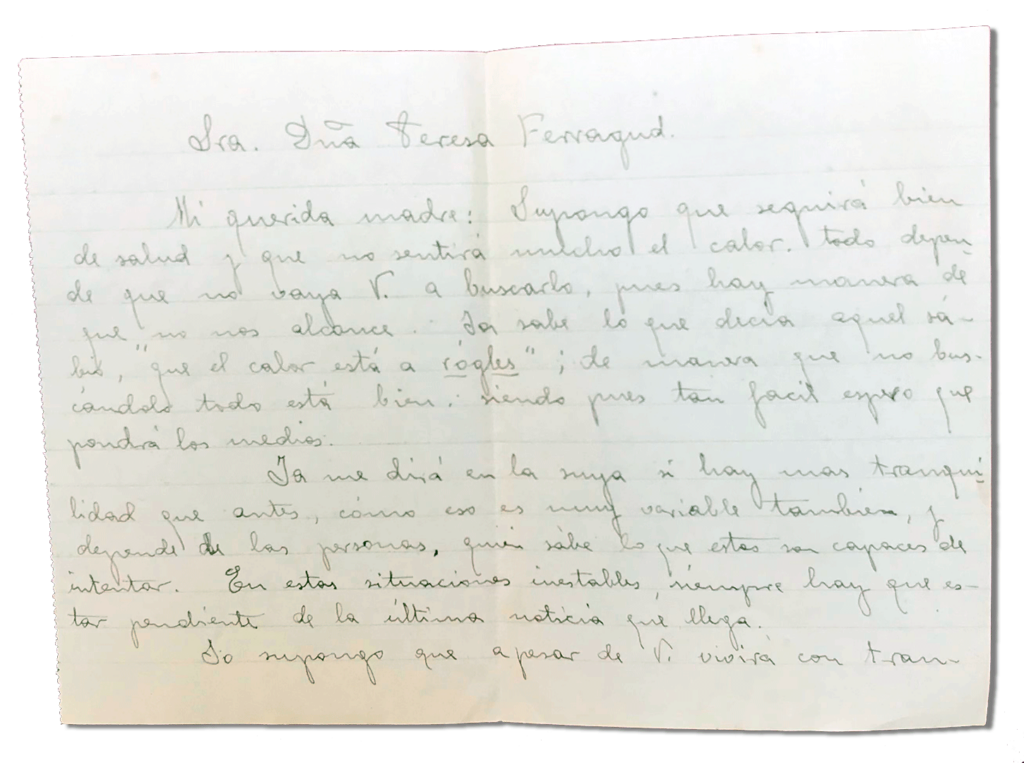 Sra. Dña Teresa Ferragud.
Mi querida madre: Supongo que seguirá bien
de salud y que no sentirá mucho el calor. todo depen-
de que no vaya V. a buscarlo, pues hay manera de
que no nos alcance. Ya sabe lo que decía aquel sá-
bio, "que el calor está a rógles"; de manera que no bus-
cándolo todo está bien. siendo pues tan facil espero que
pondrá los medios.
Ya me dirá en la suya si hay mas tranqui-
lidad que antes, cómo eso es muy variable también, y
depende de las personas, quien sabe lo que estas son capaces de
intentar. En estas situaciones inestables, siempre hay que es-
tar pendiente de la última noticia que llega.
Yo supongo que apesar de V. vivirá con tran-